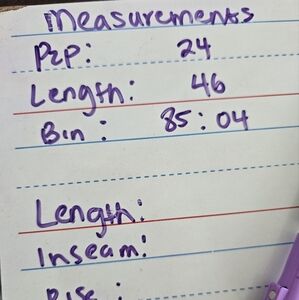 Measurements
P2P: 24
Length: 46
Bin: 85:04
Length:
Inseam:
Rise: